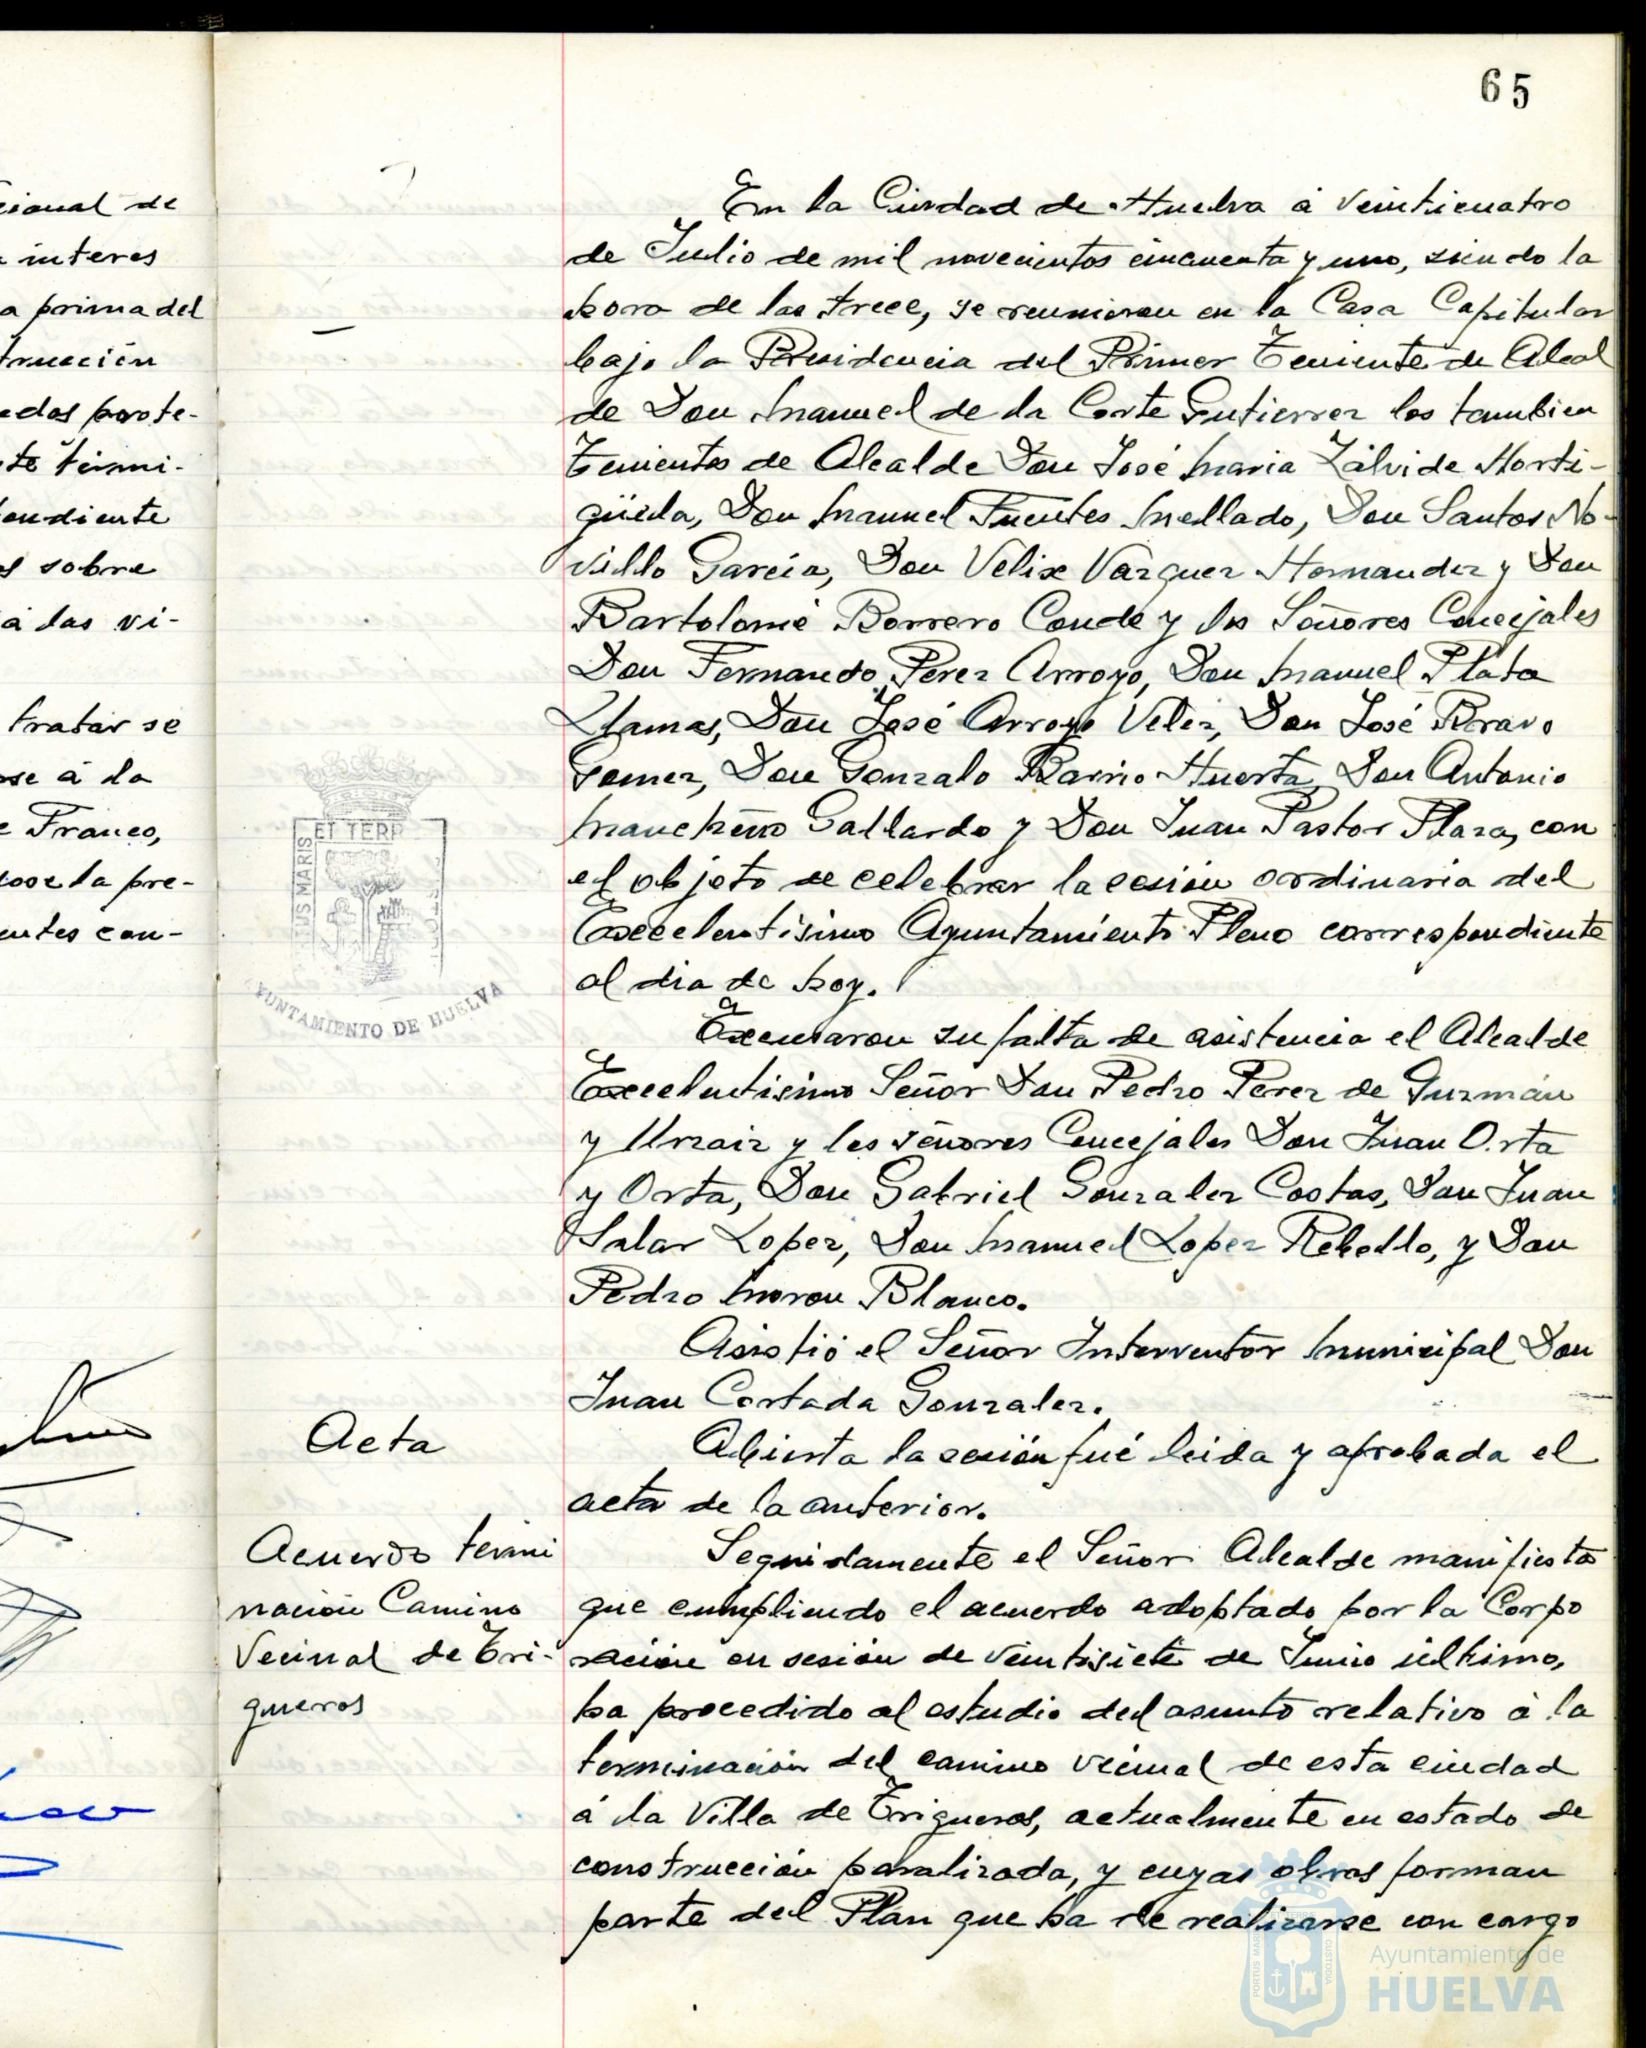 65
cional de
interes
a prima del
trucción
edas prote-
te termi-
ondiente
s sobre
á las vi-
tratar se
se á la
e Franco,
la pre-
entes con-
En la Ciudad de Huelva á veinticuatro
de Julio de mil novecientos cincuenta y uno, siendo la
hora de las trece, se reunieron en la Casa Capitular
bajo la Presidencia del Primer Teniente de Alcal
de Don Manuel de la Corte Gutierrez los tambien
Tenientes de Alcalde Don José Maria Zálvide Horti-
güela, Don Manuel Fuentes Mellado, Don Santos No-
villo García, Don Velix Vazquez Hernandez y Don
Bartolomé Borrero Conde y los Señores Concejales
Don Fernando Perez Arroyo, Don Manuel Plata
Llamas, Don José Arroyo Velez, Don José Bravo
Gomez, Don Gonzalo Barrio Huerta, Don Antonio
Mancheño Gallardo y Don Juan Pastor Plaza, con
el objeto de celebrar la sesión ordinaria del
Excelentísimo Ayuntamiento Pleno correspondiente
al dia de hoy.
Excusaron su falta de asistencia el Alcalde
Excelentisimo Señor Don Pedro Perez de Guzmán
y Urzaiz y los señores Concejales Don Juan Orta
y Orta, Don Gabriel Gonzalez Costas, Don Juan
Salar Lopez, Don Manuel Lopez Rebollo, y Don
Pedro Moron Blanco.
Asistió el Señor Interventor Municipal Don
Juan Cortada Gonzalez.
Acta
Abierta la sesión fué leida y aprobada el
acta de la anterior.
Acuerdo termi
nación Camino
Vecinal de Tri-
gueros
Seguidamente el Señor Alcalde manifiesta
que cumpliendo el acuerdo adoptado por la Corpo
ración en sesión de veintisiete de Junio último,
ha procedido al estudio del asunto relativo á la
terminación del camino vecinal de esta ciudad
á la Villa de Trigueros, actualmente en estado de
construcción paralizada, y cuyas obras forman
parte del Plan que ha de realizarse con cargo
US MARIS
ET TERR
YUNTAMIENTO DE HUELVA
PORTUS MARIS
CUSTODIA
Ayuntamiento de
HUELVA